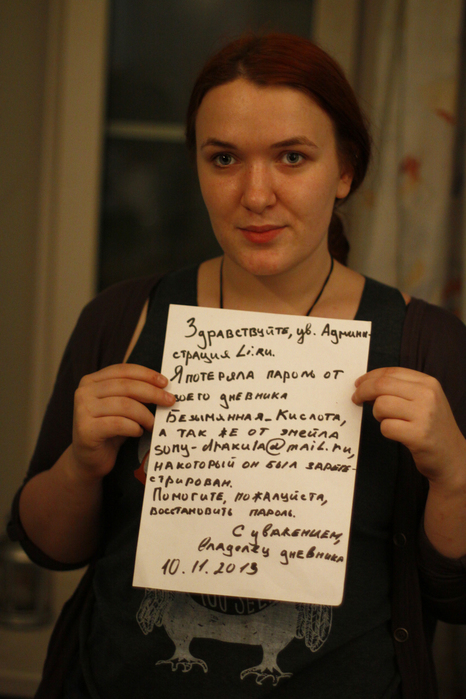 Здравствуйте, ув. Админи-
страция Li.ru.
Я потеряла пароль от
своего дневника
Безымянная_Кислота,
а так же от эмейла
sumy-drakula@mail.ru,
на который он был зареги-
стрирован.
Помогите, пожалуйста,
восстановить пароль.
С уважением,
владелец дневника
10.11.2013